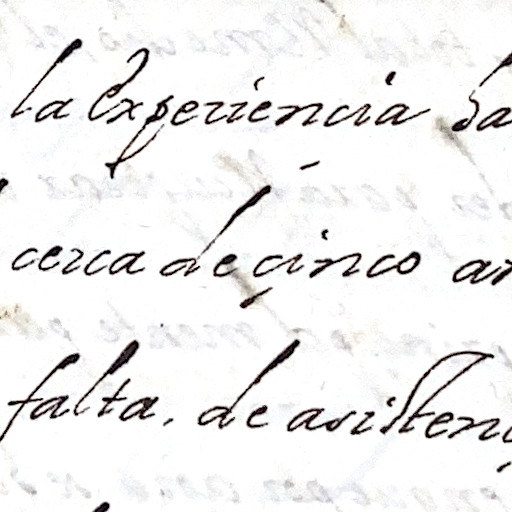 la experiencia
cerca de çinco
falta. de asisten